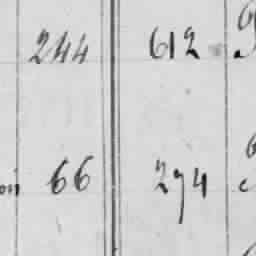 244 612
66 274